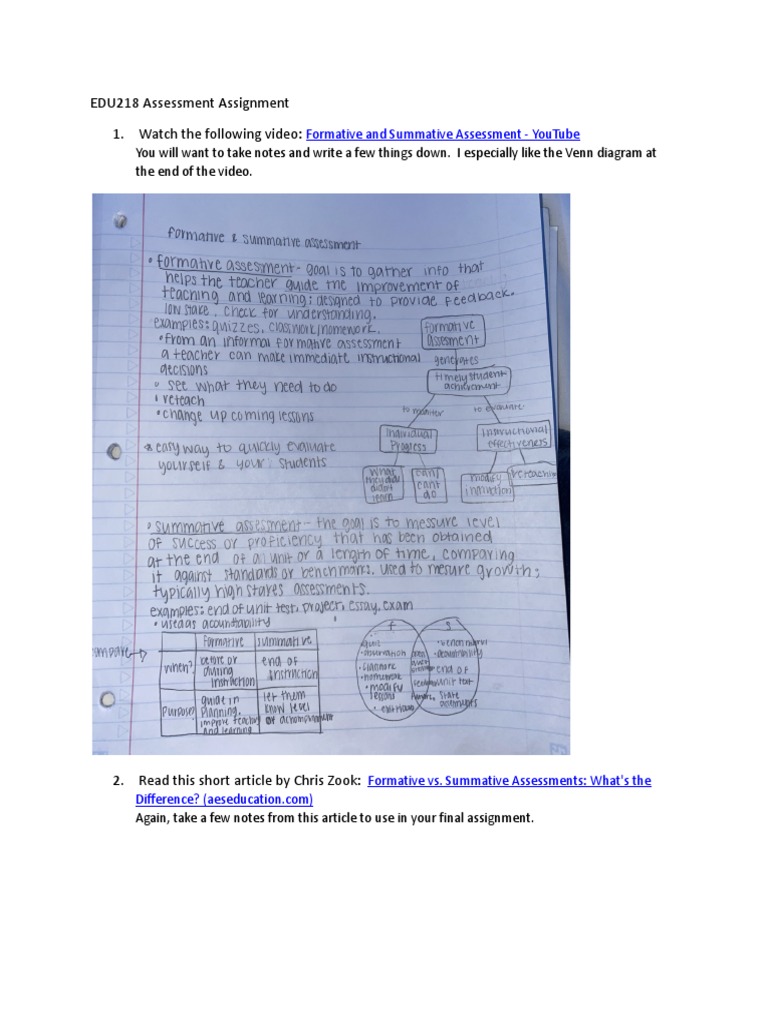 EDU218 Assessment Assignment
1. Watch the following video: Formative and Summative Assessment - YouTube
You will want to take notes and write a few things down. I especially like the Venn diagram at
the end of the video.
formative & summative assessment
• formative assesment - goal is to gather info that
helps the teacher guide the improvement of
teaching and learning; designed to provide feedback.
low stake, check for understanding.
examples: quizzes, classwork/homework.
• from an informal formative assessment
a teacher can make immediate instructional
decisions
• see what they need to do
• reteach
• change up coming lessons
* easy way to quickly evaluate
yourself & your students
formative
assesment
generates
timely student
achievement
to monitor
to evaluate
individual
Progress
instructional
effectiveness
what
they did/
didn't
learn
can't
do
modify
instruction
reteaching
• summative assesment - the goal is to messure level
of success or proficiency that has been obtained
at the end of an unit or a length of time, comparing
it against standards or benchmarks. used to mesure growth;
typically high stakes assessments.
examples: end of unit test, project, essay, exam
• used as accountability
compare →
formative summative
when? before or
during
instruction
end of
instruction
Purpose? guide in
Planning.
improve teaching
and learning
let them
know level
of
f s
• observation
• homework
• modify
lessons
• accountability
end of
unit test
State